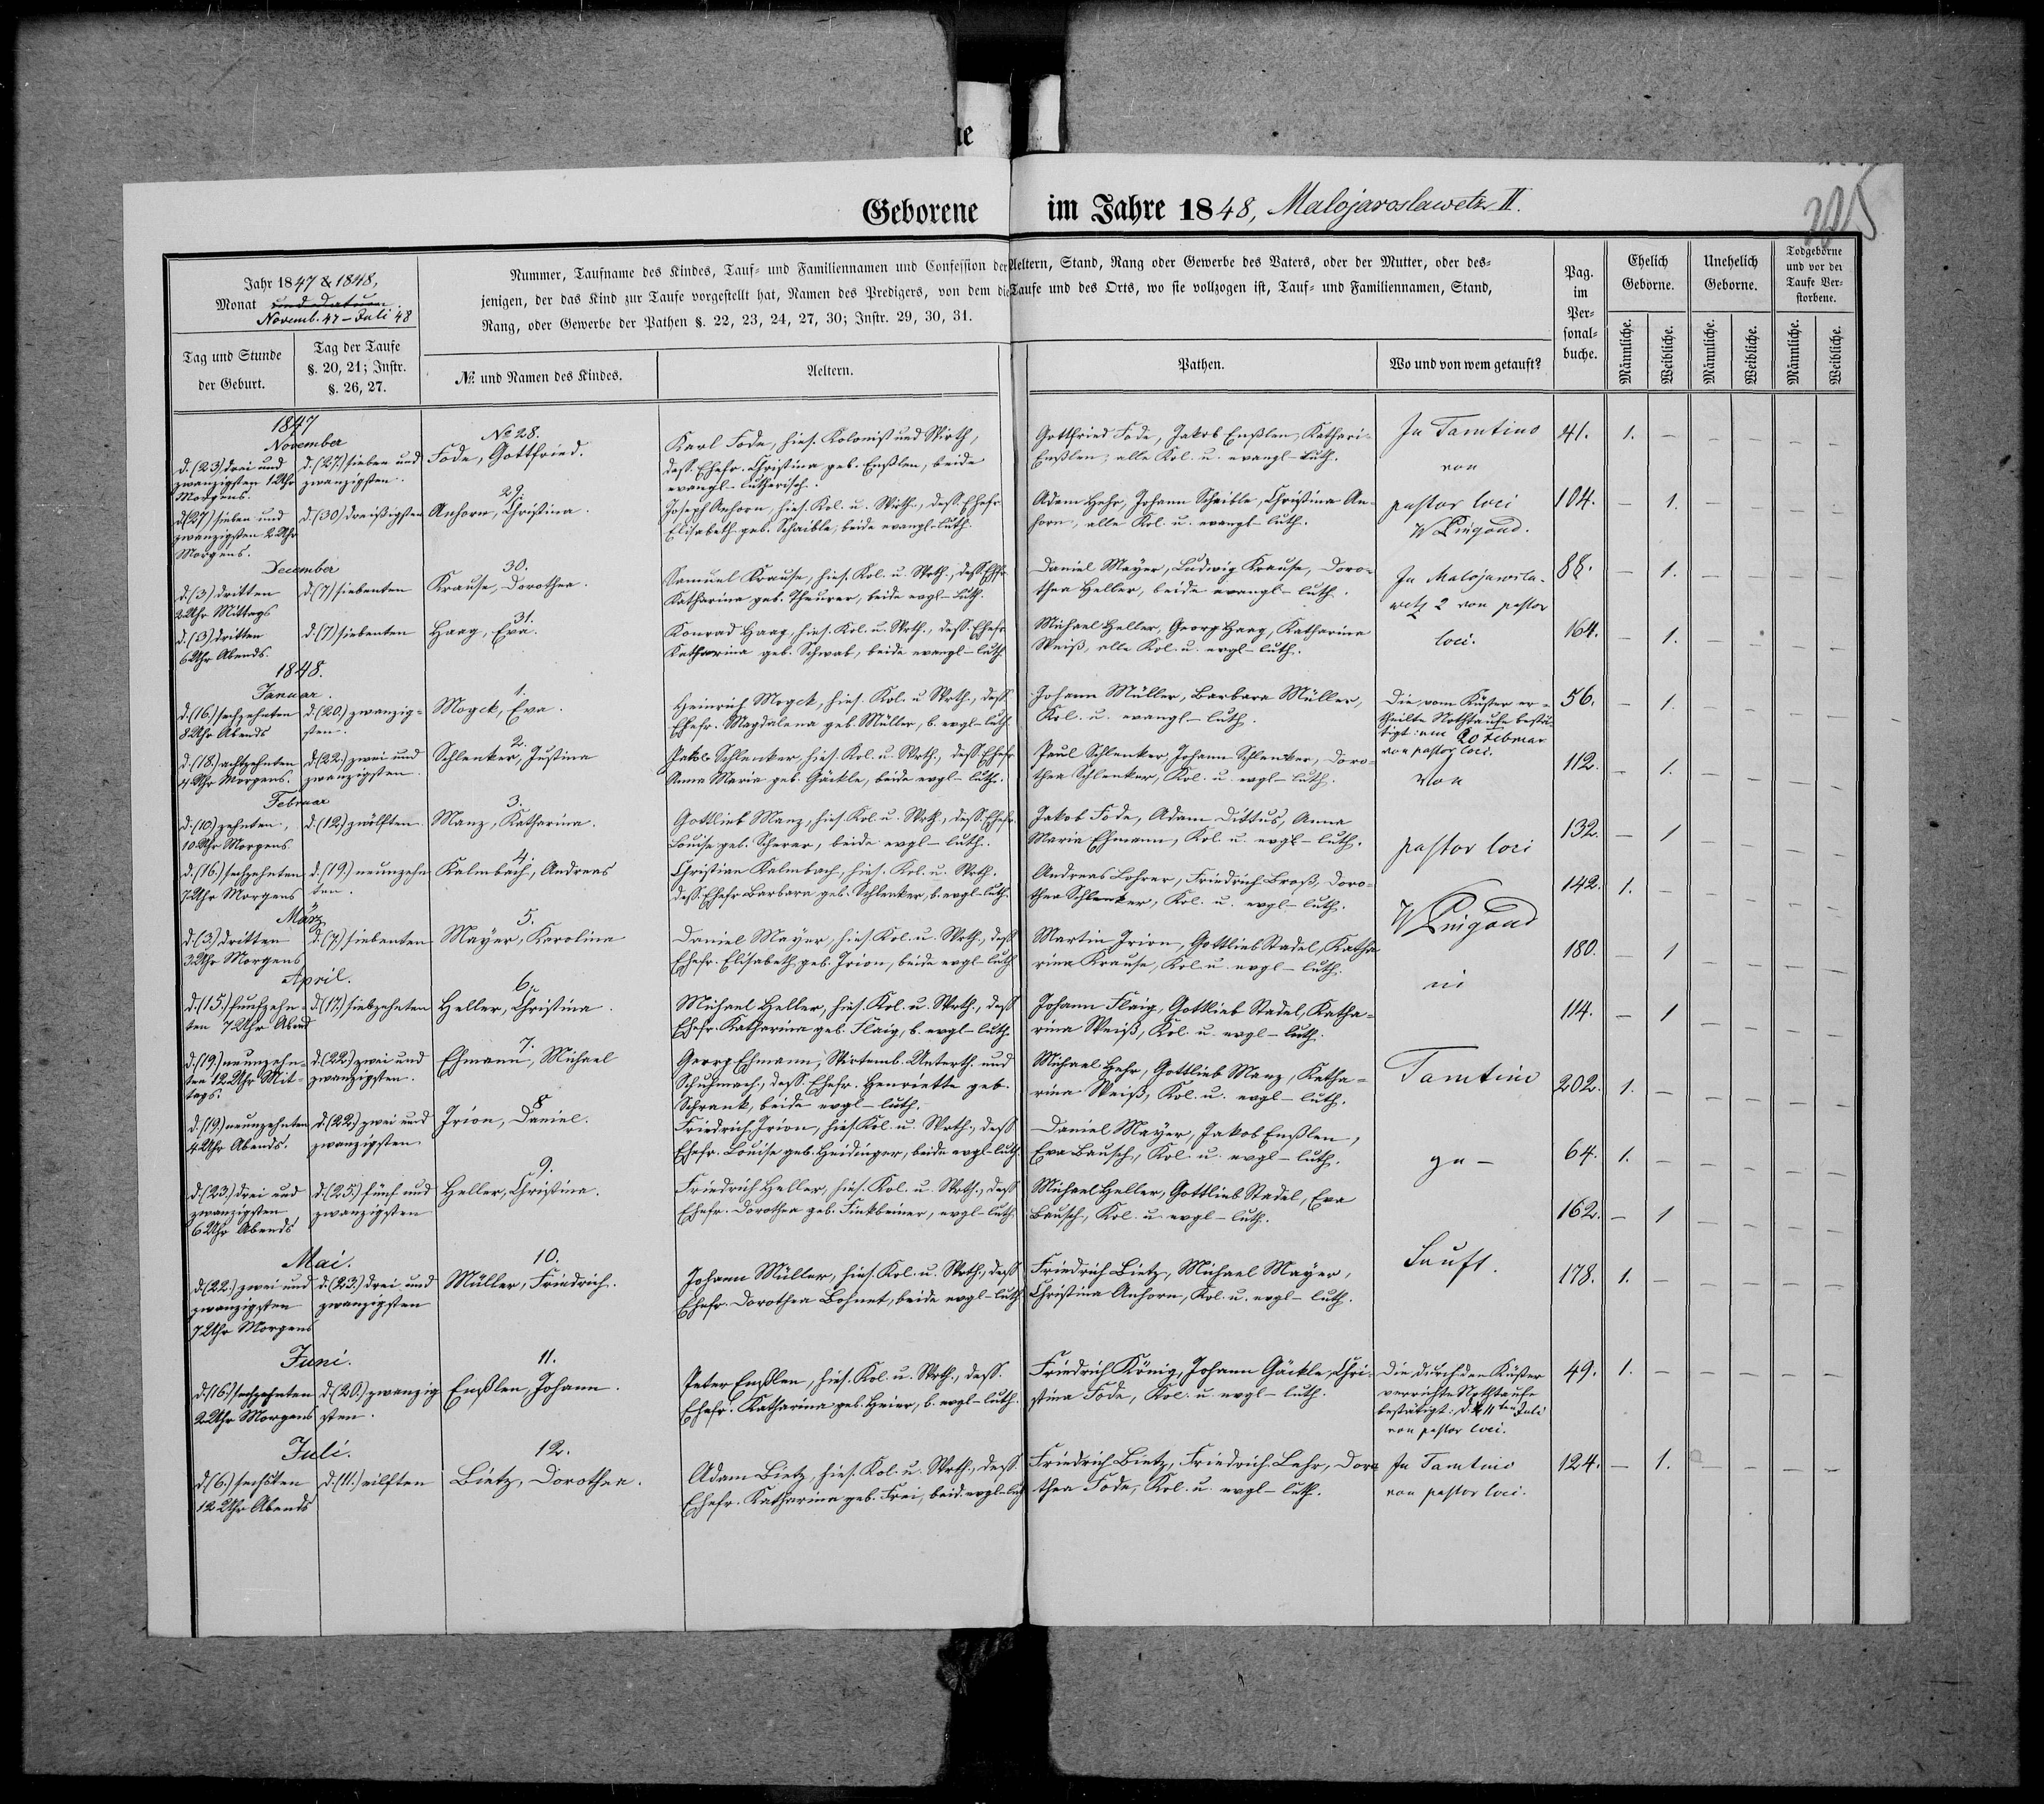 Geborene im Jahre 1848, Malojaroslawetz II.
225
Jahr 1847 & 1848,
Monat und Datum
Novemb. 47 – Juli 48
Nummer, Taufname des Kindes, Tauf- und Familiennamen und Confession der Aeltern, Stand, Rang oder Gewerbe des Vaters, oder der Mutter, oder des-
jenigen, der das Kind zur Taufe vorgestellt hat, Namen des Predigers, von dem die Taufe und des Orts, wo sie vollzogen ist, Tauf- und Familiennamen, Stand,
Rang, oder Gewerbe der Pathen §. 22, 23, 24, 27, 30; Instr. 29, 30, 31.
Pag.
im
Per-
sonal-
buche.
Ehelich
Geborne.
Unehelich
Geborne.
Todgeborne
und vor der
Taufe Ver-
storbene.
Tag und Stunde
der Geburt.
Tag der Taufe
§. 20, 21; Instr.
§. 26, 27.
№ und Namen des Kindes.
Aeltern.
Pathen.
Wo und von wem getauft?
Männliche.
Weibliche.
Männliche.
Weibliche.
Männliche.
Weibliche.
1847
November
d. (23) drei und
zwanzigsten 1 Uhr
Morgens.
d. (27.) sieben und
zwanzigsten.
No 28.
Fode, Gottfried.
Karl Fode, hies. Kolonist und Wirth,
dess. Ehefr. Christina geb. Enßlen, beide
evangl-lutherisch.
Gottfried Fode, Jakob Enßlen, Kathari-
Enßlen, alle Kol. u. evangl-luth.
In Tarutino
von
41. 1. – – – – –
d (27) sieben und
zwanzigsten 2 Uhr
Morgens.
d. (30) dreißigsten
29.
Anhorn, Christina.
Joseph Anhorn, hies. Kol. u. Wirth., dess. Ehefr
Elisabeth geb. Schaible, beide evangl-luth.
Adam Hehr, Johann Schaible, Christina An-
horn, alle Kol. u. evangl-luth.
pastor loci
W Pingoud.
104. – 1. – – – –
December
d. (3) dritten
2 Uhr Mittags
d. (7) siebenten
30.
Krause, Dorothea.
Samuel Krause, hies. Kol. u. Wrth., dess Ehfr
Katharina geb. Theurer, beide evgl-Luth.
Daniel Mayer, Ludwig Krause, Doro-
thea Heller, beide evangl-luth.
In Malojarosla-
wetz 2 von pastor
88. – 1. – – – –
d. (3) dritten
6 Uhr Abends.
d. (7) siebenten
31.
Haag, Eva.
Konrad Haag, hies. Kol. u. Wrth., dess. Ehefr
Katharina geb. Schwab, beide evangl-luth
Michael Heller, Georg Haag, Katharina
Weiß, alle Kol. u. evgl-luth.
loci.
164. – 1. – – – –
1848.
Januar.
d. (16.) sechzehnten
8 Uhr Abends
d. (20.) zwanzig-
sten.
1.
Mogck, Eva.
Heinrich Mogck, hies. Kol. u Wrth., dess
Ehefr. Magdalena geb. Müller, b. evgl-luth.
Johann Müller, Barbara Müller,
Kol. u. evangl-luth.
Die vom Küster er-
theilte Nothtaufe bestä-
tigt: am 20 Februar
von pastor loci.
56. – 1. – – – –
d. (18.) achtzehnten
4 Uhr Morgens.
d (22.) zwei und
zwanzigsten
2.
Schlenker, Justina
Jakob Schlenker, hies. Kol. u. Wrth., dess Ehefr
Anna Maria geb. Gäckle, beide evgl-luth.
Paul Schlenker, Johann Schlenker, Doro-
thea Schlenker, Kol. u. evgl-luth.
Von
112. – 1. – – – –
Februar
d. (10) zehnten,
10 Uhr Morgens
d. (12) zwölften
3.
Manz, Katharina.
Gottlieb Manz, hies. Kol. u. Wrth., dess. Ehefr.
Louise geb. Scherer, beide evgl-luth.
Jakob Fode, Adam Dittus, Anna
Maria Ehmann, Kol. u. evgl-luth.
pastor loci
132. – 1 – – – –
d. (16.) sechzehnten
7 Uhr Morgens
d. (19.) neunzehn
ten.
4.
Kalmbach, Andreas
Christian Kalmbach, hies. Kol. u. Wrth.
dess. Ehefr Barbara geb. Schlenker, b. evgl-luth.
Andreas Lohrer, Friedrich Broß, Doro-
thea Schlenker, Kol. u. evgl-luth.
W Pingoud
142. 1. – – – – –
März
d. (3.) dritten
3 Uhr Morgens
d. (7) siebenten
5.
Mayer, Karolina
Daniel Mayer, hies Kol. u. Wrth., dess
Ehefr. Elisabeth geb. Irion, beide evgl-luth
Martin Irion, Gottlieb Stadel, Katha
rina Krause, Kol. u. evgl-luth.
180. – 1 – – – –
April.
d. (15.) funfzehn-
ten 7 Uhr Abnd
d (17.) siebzehnten
6.
Heller, Christina.
Michael Heller, hies. Kol. u. Wrth., dess
Ehefr. Katharina geb. Flaig, b. evgl-luth.
Johann Flaig, Gottlieb Stadel, Katha-
rina Weiß, Kol. u. evgl-luth.
in
114. – 1 – – – –
d. (19) neunzehn-
ten 12 Uhr Mit-
tags.
d (22) zwei und
zwanzigsten.
7.
Ehmann, Michael
Georg Ehmann, Wirtemb. Unterth. und
Schuhmach., dess. Ehefr. Henriette geb.
Schrank, beide evgl-luth.
Michael Hehr, Gottlieb Manz, Katha-
rina Weiß, Kol. u. evgl-luth.
Tarutino
202. 1. – – – – –
d. (19.) neunzehnten
4 Uhr Abends.
d. (22.) zwei und
zwanzigsten
8
Irion, Daniel.
Friedrich Irion, hies Kol. u. Wrth., dess
Ehefr. Louise geb. Heidinger, beide evgl-luth.
Daniel Mayer, Jakob Enßlen,
Eva Bausch, Kol. u. evgl-luth.
ge-
64. 1. – – – – –
d. (23.) drei und
zwanzigsten
6 Uhr Abends
d. (25.) fünf und
zwanzigsten
9.
Heller, Christina.
Friedrich Heller, hies. Kol. u. Wrth., dess
Ehefr. Dorothea geb. Finkbeiner, evgl-luth
Michael Heller, Gottlieb Stadel, Eva
Bausch, Kol. u. evgl-luth.
162. – 1 – – – –
Mai.
d. (22.) zwei und
zwanzigsten
7 Uhr Morgens
d. (23.) drei und
zwanzigsten
10.
Müller, Friedrich.
Johann Müller, hies. Kol. u. Wrth., dess
Ehefr. Dorothea Bohnet, beide evgl-luth
Friedrich Bietz, Michael Mayer,
Christina Anhorn, Kol. u. evgl-luth.
tauft.
178. 1. – – – – –
Juni.
d. (16.) sechzehnten
2 Uhr Morgens
d (20.) zwanzig
sten.
11.
Enßlen, Johann.
Peter Enßlen, hies. Kol. u. Wrth., dess.
Ehefr. Katharina geb. Heier, b. evgl-luth.
Friedrich König, Johann Gäckle, Chri-
stina Fode, Kol. u. evgl-luth.
Die durch den Küster
verrichte Nothtaufe
bestätigt: d. 11ten Juli
von pastor loci.
49. 1. – – – – –
Juli.
d. (6.) sechsten
12 Uhr Abends
d. (11.) eilften
12.
Bietz, Dorothea.
Adam Bietz, hies. Kol. u. Wrth., dess
Ehefr. Katharina geb. Frei, beid. evgl-luth
Friedrich Bietz, Friedrich Lehr, Doro
thea Fode, Kol. u. evgl-luth.
In Tarutino
von pastor loci.
124. – 1. – – – –